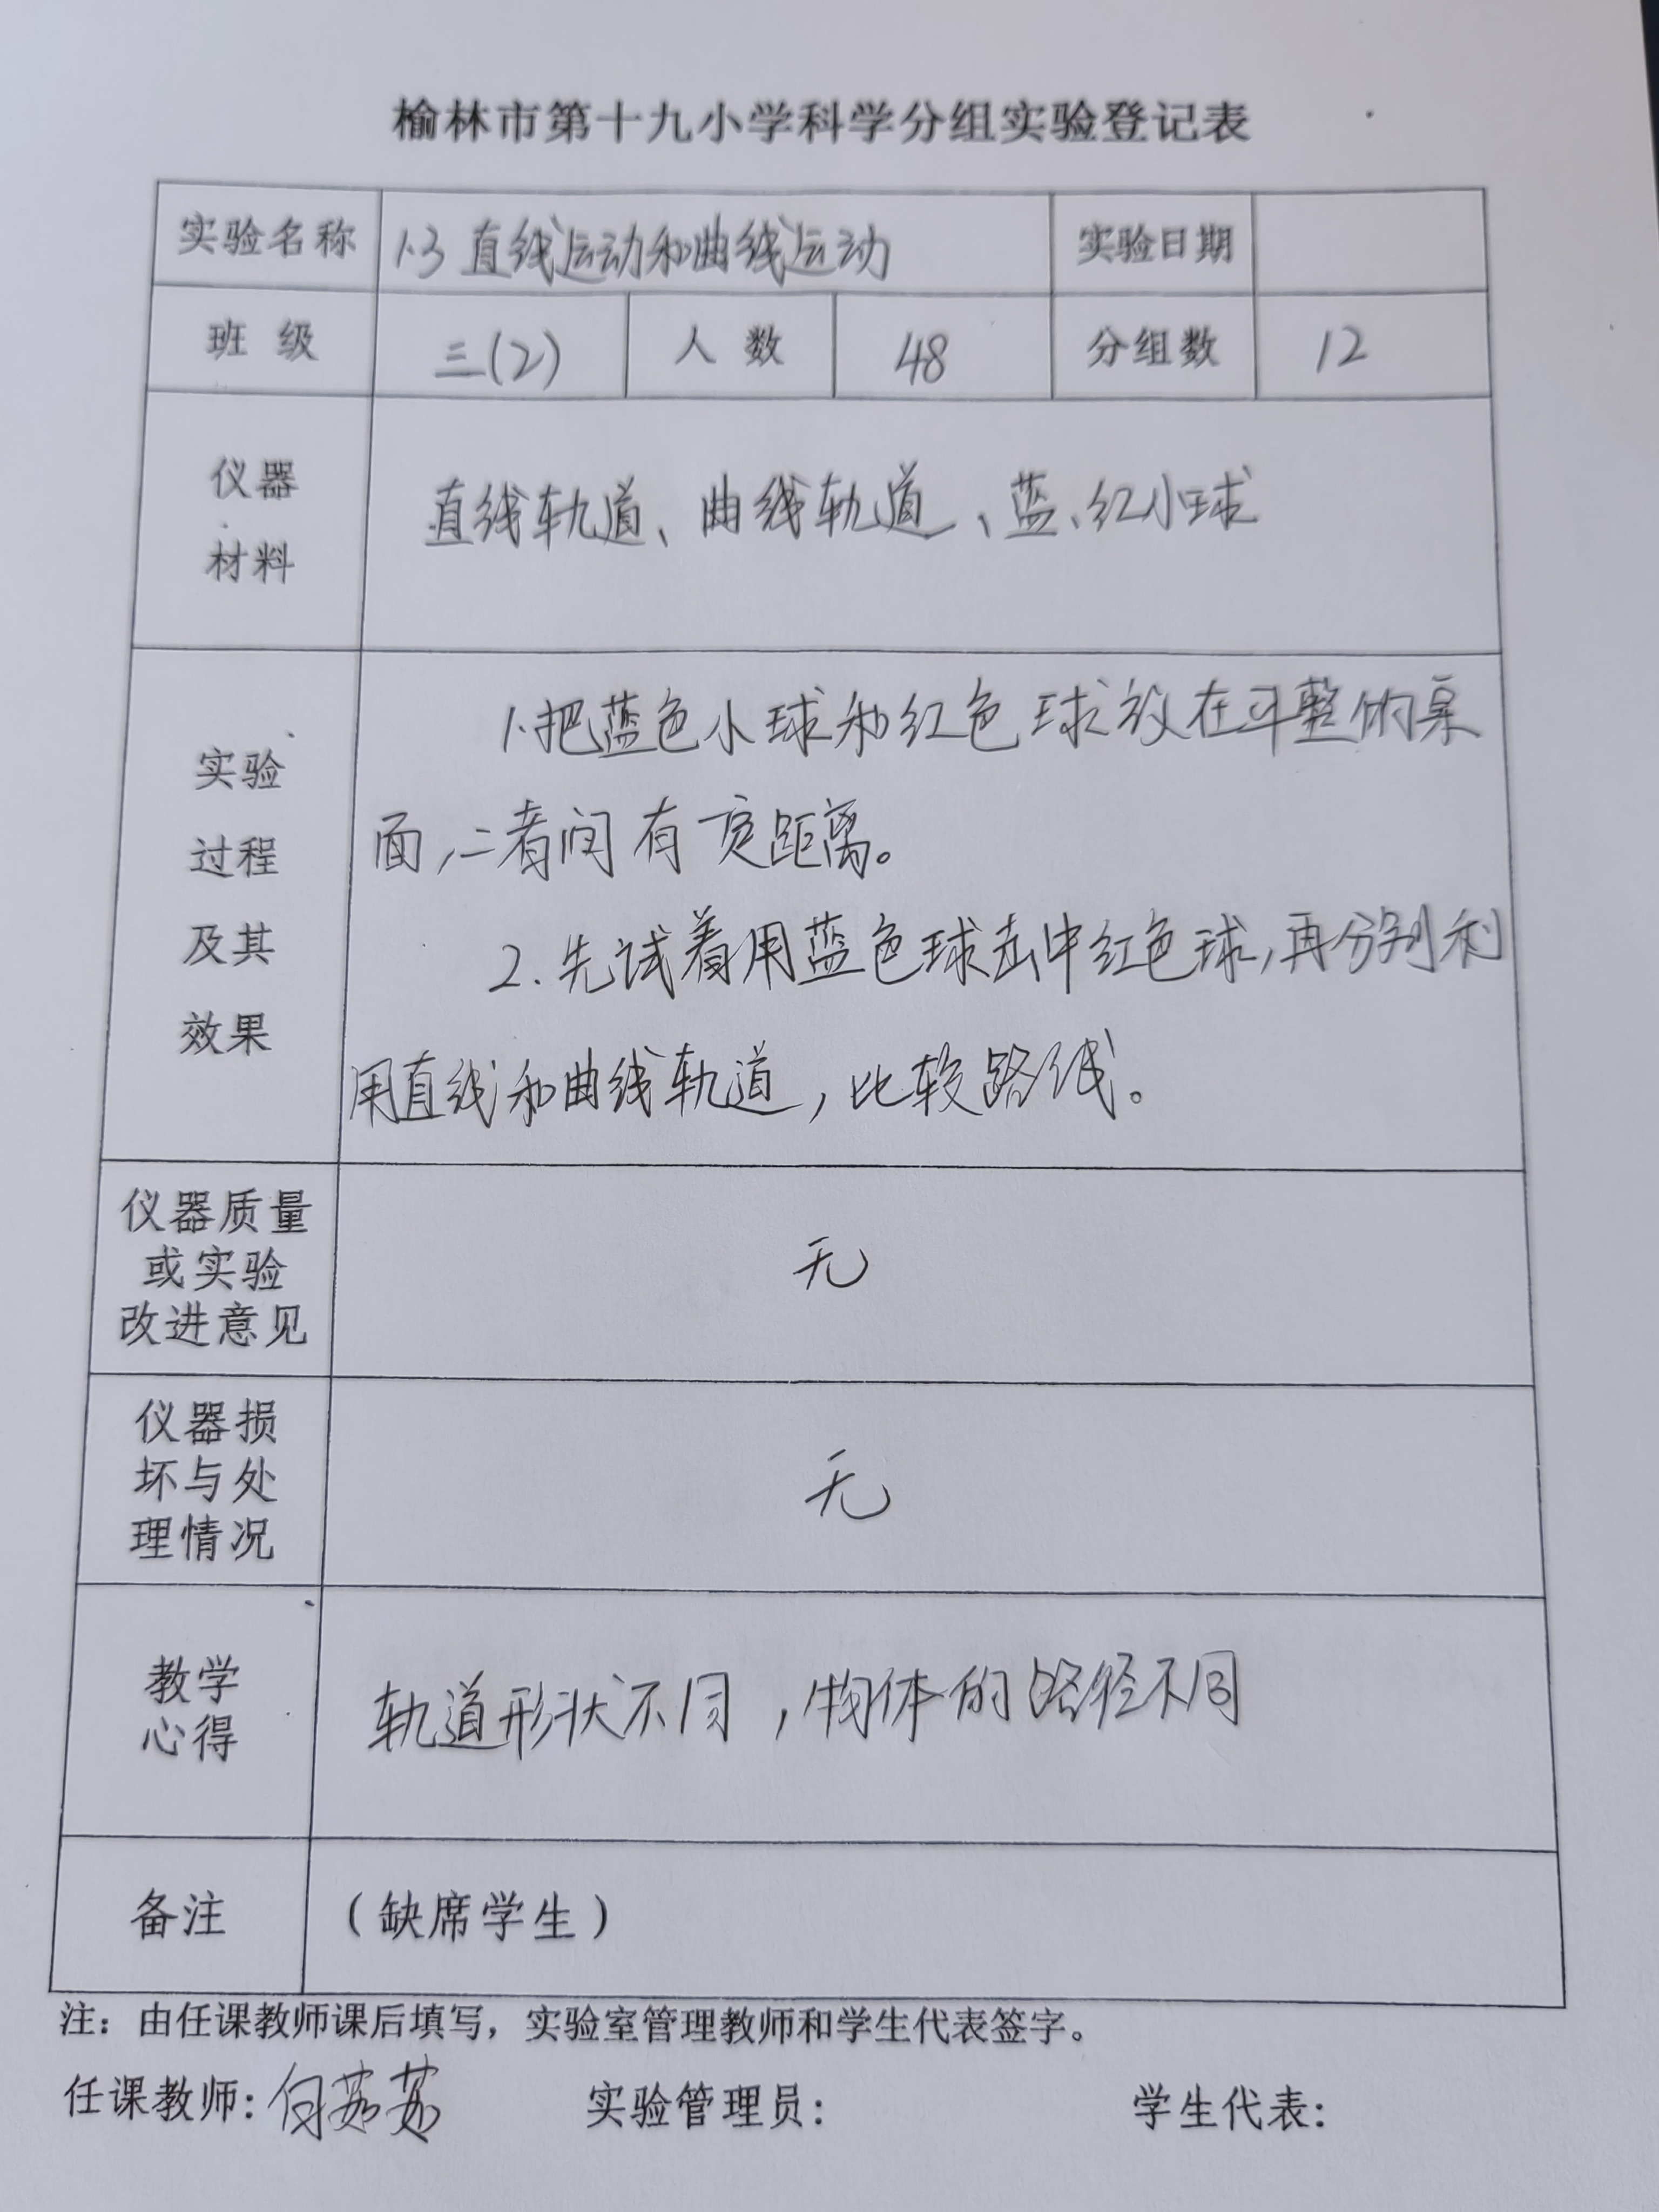 榆林市第十九小学科学分组实验登记表
实验名称 1.3 直线运动和曲线运动 实验日期
班 级 三(2) 人 数 48 分组数 12
仪器
材料
直线轨道、曲线轨道、蓝、红小球
实验
过程
及其
效果
1.把蓝色小球和红色球放在平整的桌
面,二者间有一定距离。
2.先试着用蓝色球击中红色球,再分别利
用直线和曲线轨道,比较路线。
仪器质量
或实验
改进意见
无
仪器损
坏与处
理情况
无
教学
心得
轨道形状不同,物体的路径不同
备注 (缺席学生)
注:由任课教师课后填写,实验室管理教师和学生代表签字。
任课教师: 实验管理员: 学生代表: